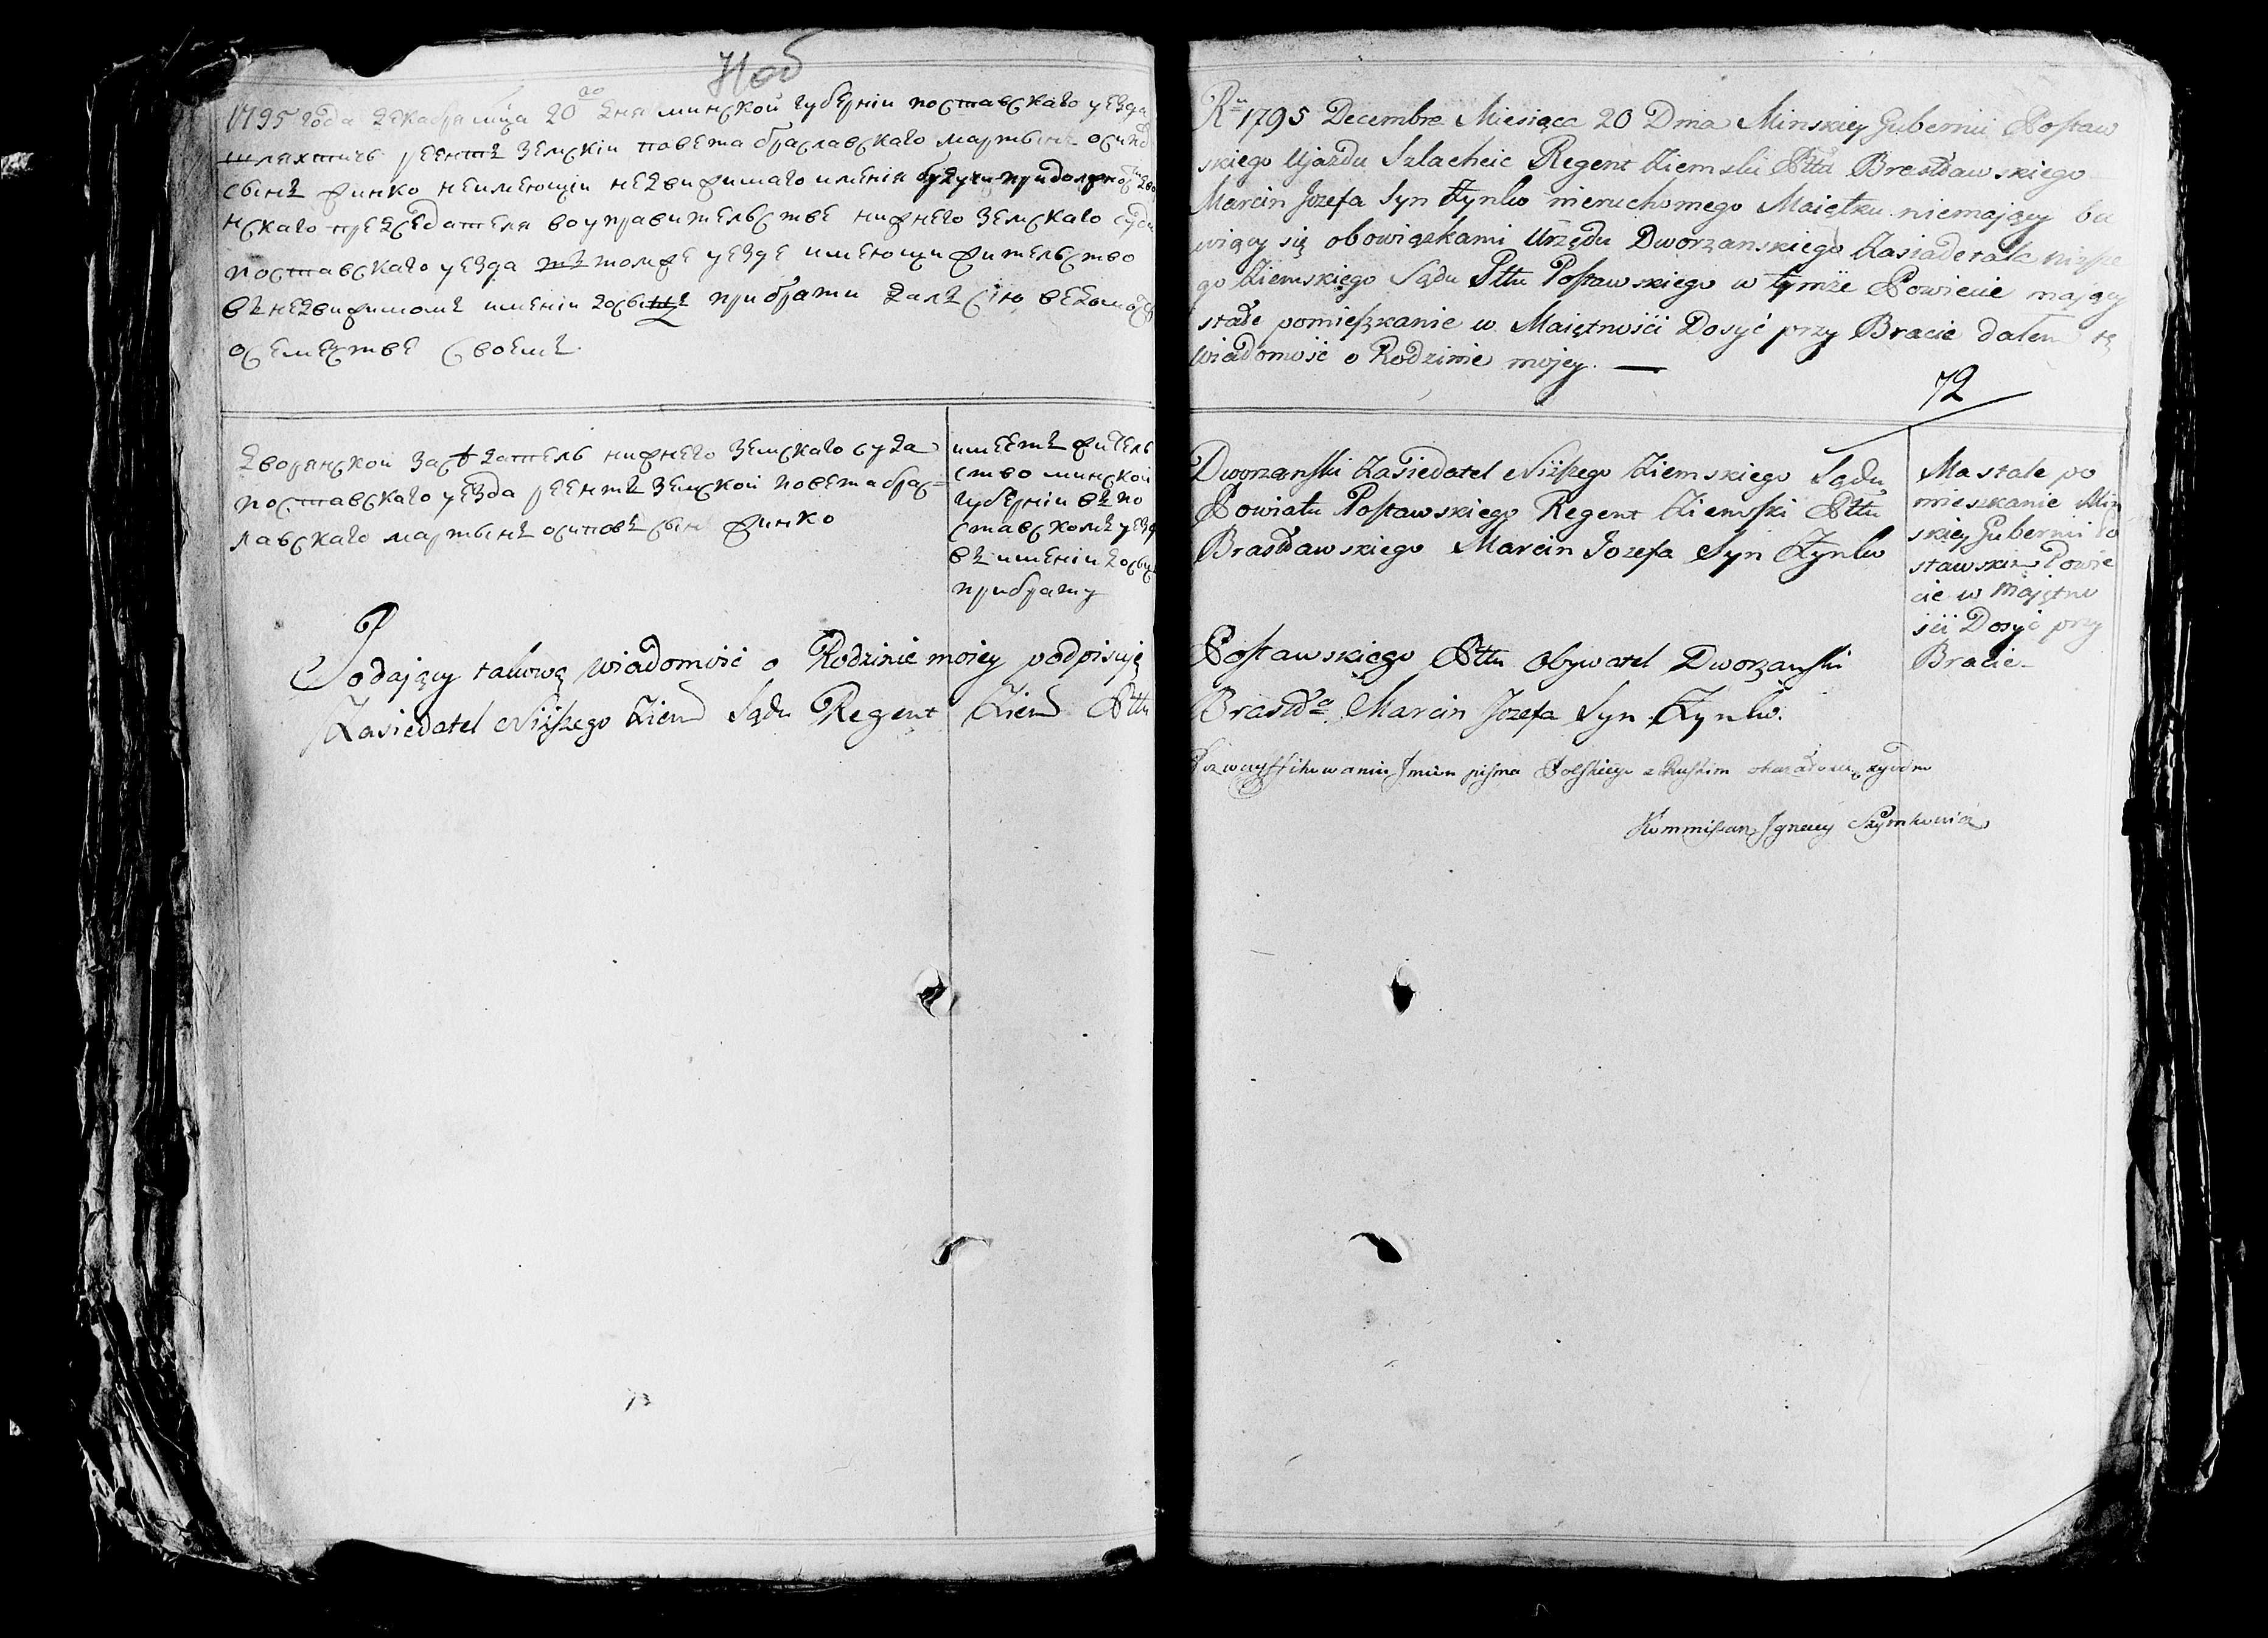 1795 года декабря мҍца 20го дня минской губерніи поставскаго уезда
шляхтичъ реентъ земскіи повета браславскаго мартынъ осиповъ
сынъ жинко неимеющіи недвижимаго именія будучи при должности дво
нскаго председателя во управительстве нижнего земскаго суда
поставскаго уезда тъ томже уезде имеющи жительство
въ недвижимомъ именіи досыцъ при брати далъ сію ведомость
о семестве своемъ.
дворянской заседатель нижнего земскаго суда
поставскаго уезда реентъ земской повета брас=
лавскаго мартынъ осиповъ сынъ жинко
имеетъ житель
ство минской
губерніи въ по
ставскомъ уезд
въ именіи досыц
при брату
Podający takową wiadomość o Rodzinie moiey podpisuję
Zasiedatel Niższego Ziem Sądu Regent Ziem Pttu
Rku 1795 Decembra Miesiąca 20 Dnia Minskiey Gubernii Postaw
skiego Ujazdu Szlachcic Regent Ziemski Pttu Brasławskiego
Marcin Jozefa Syn Żynko nieruchomego Maiętku niemający ba
wiący się obowiązkami Urzędu Dworzanskiego Zasiadetala niższe
go Ziemskiego Sądu Pttu Postawskiego w tymże Powiecie mający
stałe pomieszkanie w Maiętności Dosyć przy Bracie dałem tę
wiadomość o Rodzinie mojey. —
72
Dworzanski Zasiedatel Niższego Ziemskiego Sądu
Powiatu Postawskiego Regent Ziemski Pttu
Brasławskiego Marcin Jozefa Syn Żynko
Ma stałe po
mieszkanie Min
skiey Gubernii Po
stawskim Powie
cie w Majętno
ści Dosyć przy
Bracie
Postawskiego Pttu Obywatel Dworzanski
Brasłgo Marcin Jozefa Syn Żynko.
pisma Polskiego z Ruskim okazało się zgodno
Kommissarz Ignacy Szymkowicz
73